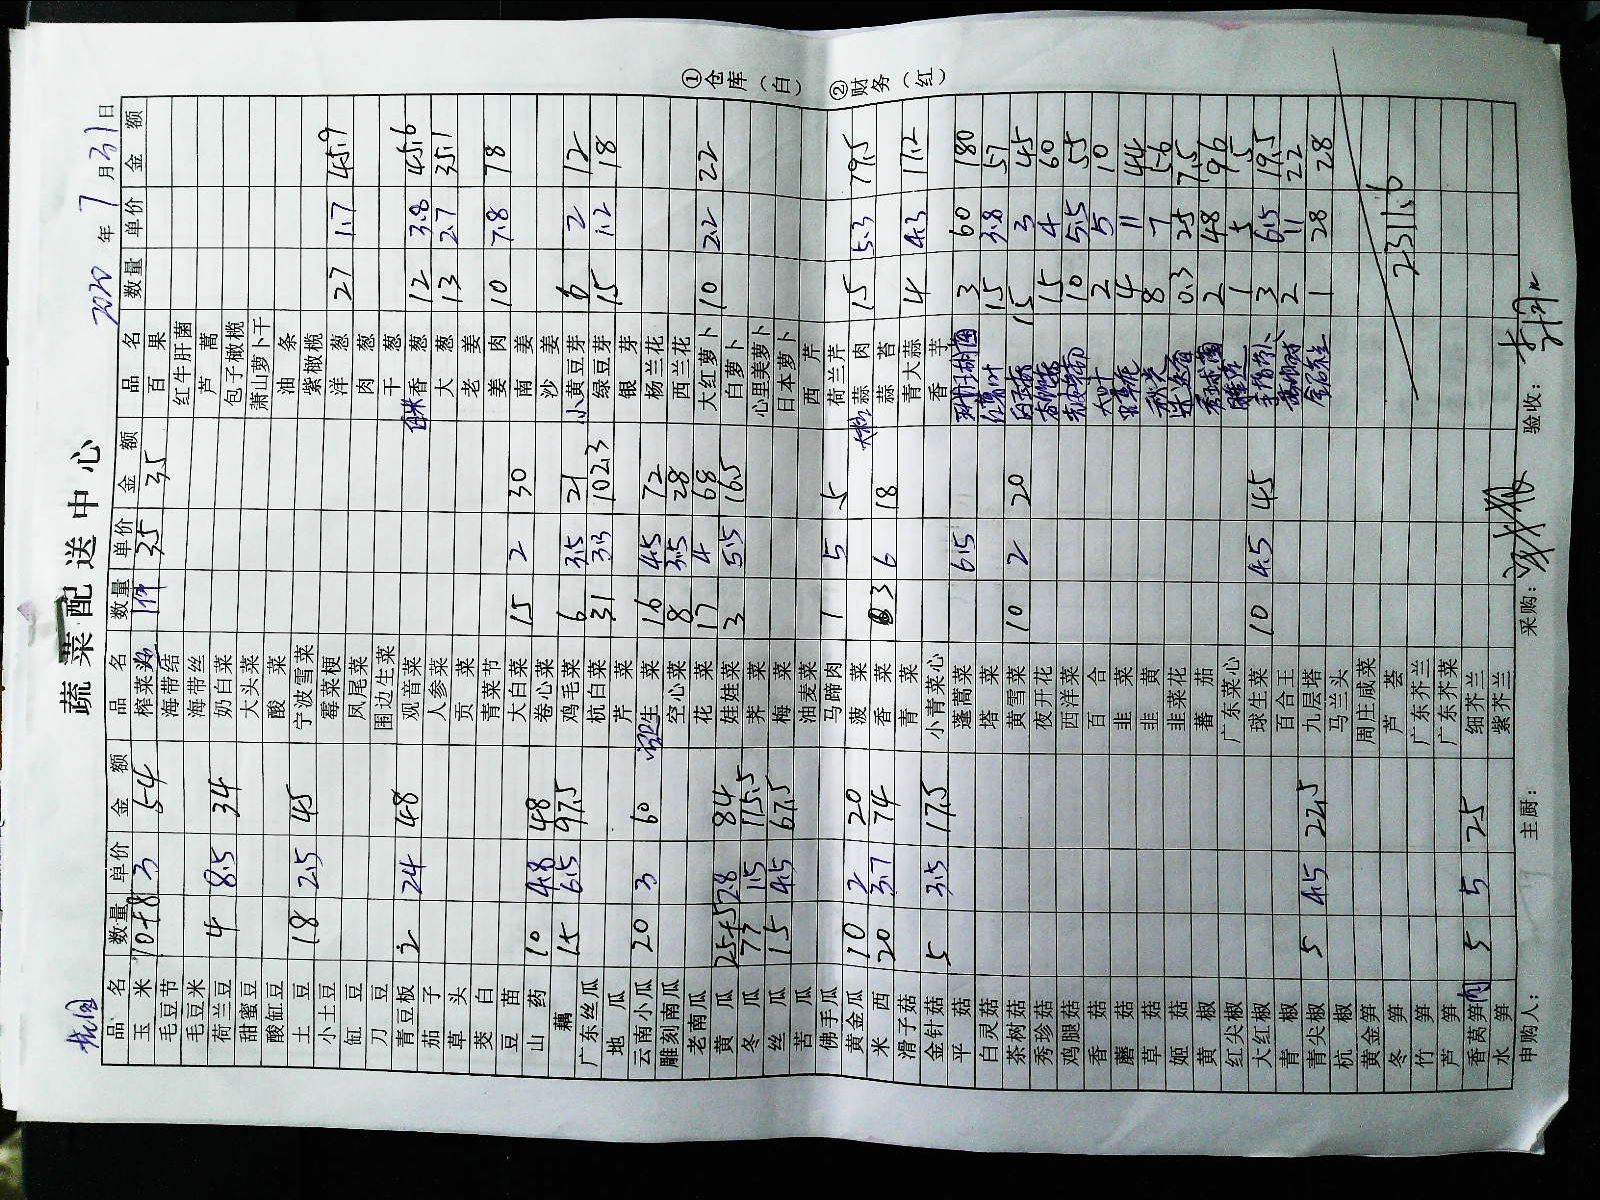 蔬菜配送中心
2020年7月31日
①仓库(白) ②财务(红)
品名 数量 单价 金额 品名 数量 单价 金额 品名 数量 单价 金额
玉米 10+8 3 54 榨菜 1件 35 35 百果
毛豆节 海带结 红牛肝菌
毛豆米 海带丝 芦蒿
荷兰豆 4 8.5 34 奶白菜 包子橄榄
甜蜜豆 大头菜 萧山萝卜干
酸缸豆 酸菜 油条
土豆 18 2.5 45 宁波雪菜 紫橄榄
小土豆 霉菜梗 洋葱 27 1.7 45.9
缸豆 凤尾菜 肉葱
刀豆 围边生菜 干葱
青豆板 2 24 48 观音菜 香葱 12 3.8 45.6
茄子 人参菜 大葱 13 2.7 35.1
草头 贡菜 老姜
茭白 青菜节 姜肉 10 7.8 78
豆苗 大白菜 15 2 30 南姜
山药 10 4.8 48 卷心菜 沙姜
藕 15 6.5 97.5 鸡毛菜 6 3.5 21 小黄豆芽 6 2 12
广东丝瓜 杭白菜 31 3.3 102.3 绿豆芽 15 1.2 18
地瓜 芹菜 银芽
云南小瓜 20 3 60 生菜 16 4.5 72 杨兰花
雕刻南瓜 空心菜 8 3.5 28 西兰花
老南瓜 花菜 17 4 68 大红萝卜 10 2.2 22
黄瓜 25+5 2.8 84 娃娃菜 3 5.5 16.5 白萝卜
冬瓜 77 1.5 115.5 荠菜 心里美萝卜
丝瓜 15 4.5 67.5 梅菜 日本萝卜
苦瓜 油麦菜 西芹
佛手瓜 马蹄肉 1 5 5 荷兰芹
黄金瓜 10 2 20 菠菜 蒜肉 15 5.3 79.5
米西 20 3.7 74 香菜 3 6 18 蒜苔
滑子菇 青菜 青大蒜 4 4.3 17.2
金针菇 5 3.5 17.5 小青菜心 香芋
平菇 蓬蒿菜 6.5 3 60 180
白灵菇 塔菜 15 3.8 57
茶树菇 黄雪菜 10 2 20 15 3 45
秀珍菇 夜开花 15 4 60
鸡腿菇 西洋菜 10 5.5 55
香菇 百合 2 5 10
蘑菇 韭菜 4 11 44
草菇 韭黄 8 7 56
姬菇 韭菜花 0.3 25 7.5
黄椒 蕃茄 2 48 96
红尖椒 广东菜心 1 5 5
大红椒 球生菜 10 4.5 45 3 6.5 19.5
青椒 百合王 2 11 22
青尖椒 5 4.5 22.5 九层塔 1 28 28
杭椒 马兰头
黄金笋 周庄咸菜
冬笋 芦荟
竹笋 广东芥兰
芦笋 广东芥菜
香莴笋肉 5 5 25 细芥兰
水笋 紫芥兰
2311.6
申购人: 主厨: 采购: 验收: